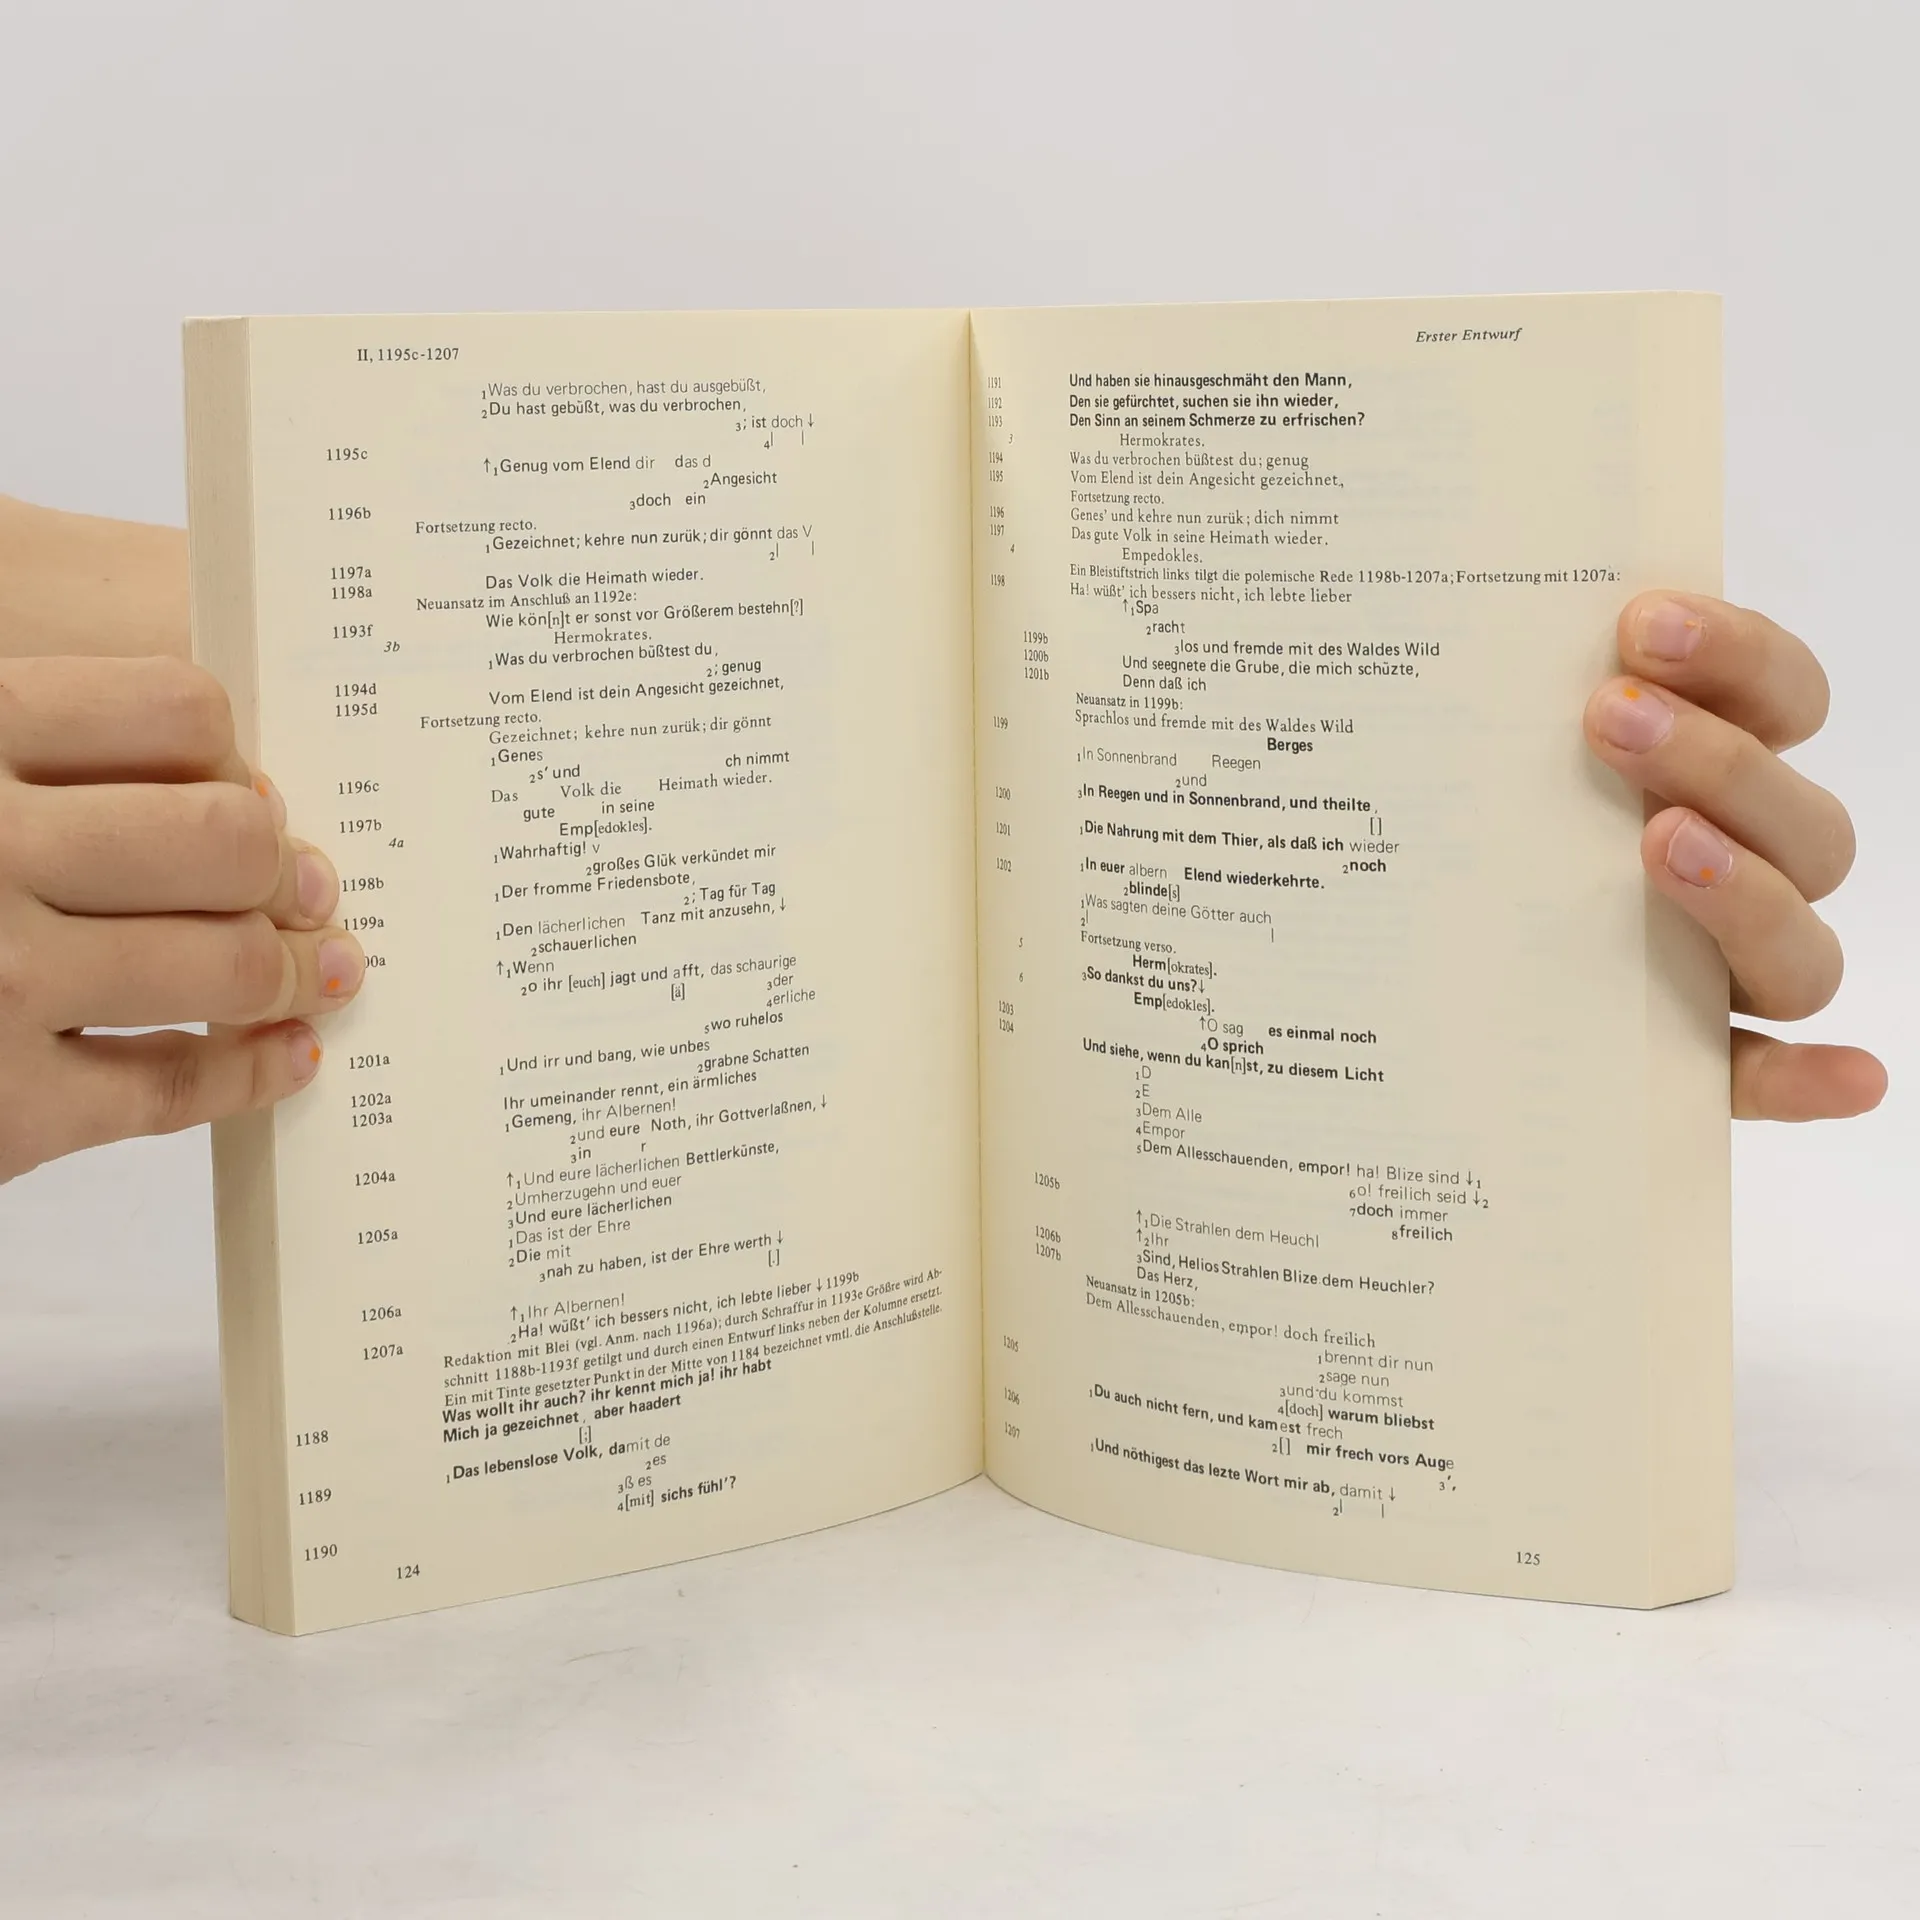 II, 1195c-1207
1Was du verbrochen, hast du ausgebüßt,
2Du hast gebüßt, was du verbrochen,
3; ist doch ↓
4| |
1195c ↑1Genug vom Elend dir das d
2Angesicht
3doch ein
1196b
Fortsetzung recto.
1Gezeichnet; kehre nun zurük; dir gönnt das V
2| |
1197a Das Volk die Heimath wieder.
1198a
Neuansatz im Anschluß an 1192e:
Wie kön[n]t er sonst vor Größerem bestehn[?]
1193f Hermokrates.
3b 1Was du verbrochen büßtest du,
2; genug
1194d Vom Elend ist dein Angesicht gezeichnet,
1195d
Fortsetzung recto.
Gezeichnet; kehre nun zurük; dir gönnt
1Genes ch nimmt
2s' und
1196c Das Volk die Heimath wieder.
gute in seine
1197b Emp[edokles].
4a 1Wahrhaftig! v
2großes Glük verkündet mir
1198b 1Der fromme Friedensbote,
2; Tag für Tag
1199a 1Den lächerlichen Tanz mit anzusehn, ↓
2schauerlichen
00a ↑1Wenn
2o ihr [euch] jagt und afft, das schaurige
[ä] 3der
4erliche
5wo ruhelos
1201a 1Und irr und bang, wie unbes
2grabne Schatten
1202a Ihr umeinander rennt, ein ärmliches
1203a 1Gemeng, ihr Albernen!
2und eure Noth, ihr Gottverlaßnen, ↓
3in r
1204a ↑1Und eure lächerlichen Bettlerkünste,
2Umherzugehn und euer
3Und eure lächerlichen
1205a 1Das ist der Ehre
2Die mit
3nah zu haben, ist der Ehre werth ↓
[.]
1206a ↑1Ihr Albernen!
2Ha! wüßt' ich bessers nicht, ich lebte lieber ↓ 1199b
1207a
Redaktion mit Blei (vgl. Anm. nach 1196a); durch Schraffur in 1193e Größre wird Ab-
schnitt 1188b-1193f getilgt und durch einen Entwurf links neben der Kolumne ersetzt.
Ein mit Tinte gesetzter Punkt in der Mitte von 1184 bezeichnet vmtl. die Anschlußstelle.
Was wollt ihr auch? ihr kennt mich ja! ihr habt
1188 Mich ja gezeichnet, aber haadert
[;]
1189 1Das lebenslose Volk, damit de
2es
3ß es
1190 4[mit] sichs fühl'?
124
Erster Entwurf
1191 Und haben sie hinausgeschmäht den Mann,
1192 Den sie gefürchtet, suchen sie ihn wieder,
1193 Den Sinn an seinem Schmerze zu erfrischen?
3 Hermokrates.
1194 Was du verbrochen büßtest du; genug
1195 Vom Elend ist dein Angesicht gezeichnet,
Fortsetzung recto.
1196 Genes' und kehre nun zurük; dich nimmt
1197 Das gute Volk in seine Heimath wieder.
4 Empedokles.
Ein Bleistiftstrich links tilgt die polemische Rede 1198b-1207a; Fortsetzung mit 1207a:
1198 Ha! wüßt' ich bessers nicht, ich lebte lieber
↑1Spa
2racht
1199b 3los und fremde mit des Waldes Wild
1200b Und seegnete die Grube, die mich schüzte,
1201b Denn daß ich
Neuansatz in 1199b:
1199 Sprachlos und fremde mit des Waldes Wild
Berges
1In Sonnenbrand Reegen
2und
1200 3In Reegen und in Sonnenbrand, und theilte,
[]
1201 1Die Nahrung mit dem Thier, als daß ich wieder
2noch
1202 1In euer albern Elend wiederkehrte.
2blinde[s]
1Was sagten deine Götter auch
2| |
Fortsetzung verso.
5 Herm[okrates].
3So dankst du uns? ↓
6 Emp[edokles].
1203 ↑O sag es einmal noch
4O sprich
1204 Und siehe, wenn du kan[n]st, zu diesem Licht
1D
2E
3Dem Alle
4Empor
5Dem Allesschauenden, empor! ha! Blize sind ↓1
6o! freilich seid ↓2
7doch immer
8freilich
1205b ↑1Die Strahlen dem Heuchl
↑2Ihr
1206b 3Sind, Helios Strahlen Blize dem Heuchler?
1207b Das Herz,
Neuansatz in 1205b:
Dem Allesschauenden, empor! doch freilich
1205 1brennt dir nun
2sage nun
3und du kommst
4[doch] warum bliebst
1206 1Du auch nicht fern, und kamest frech
2[] mir frech vors Auge
3',
1207 1Und nöthigest das lezte Wort mir ab, damit ↓
2| |
125